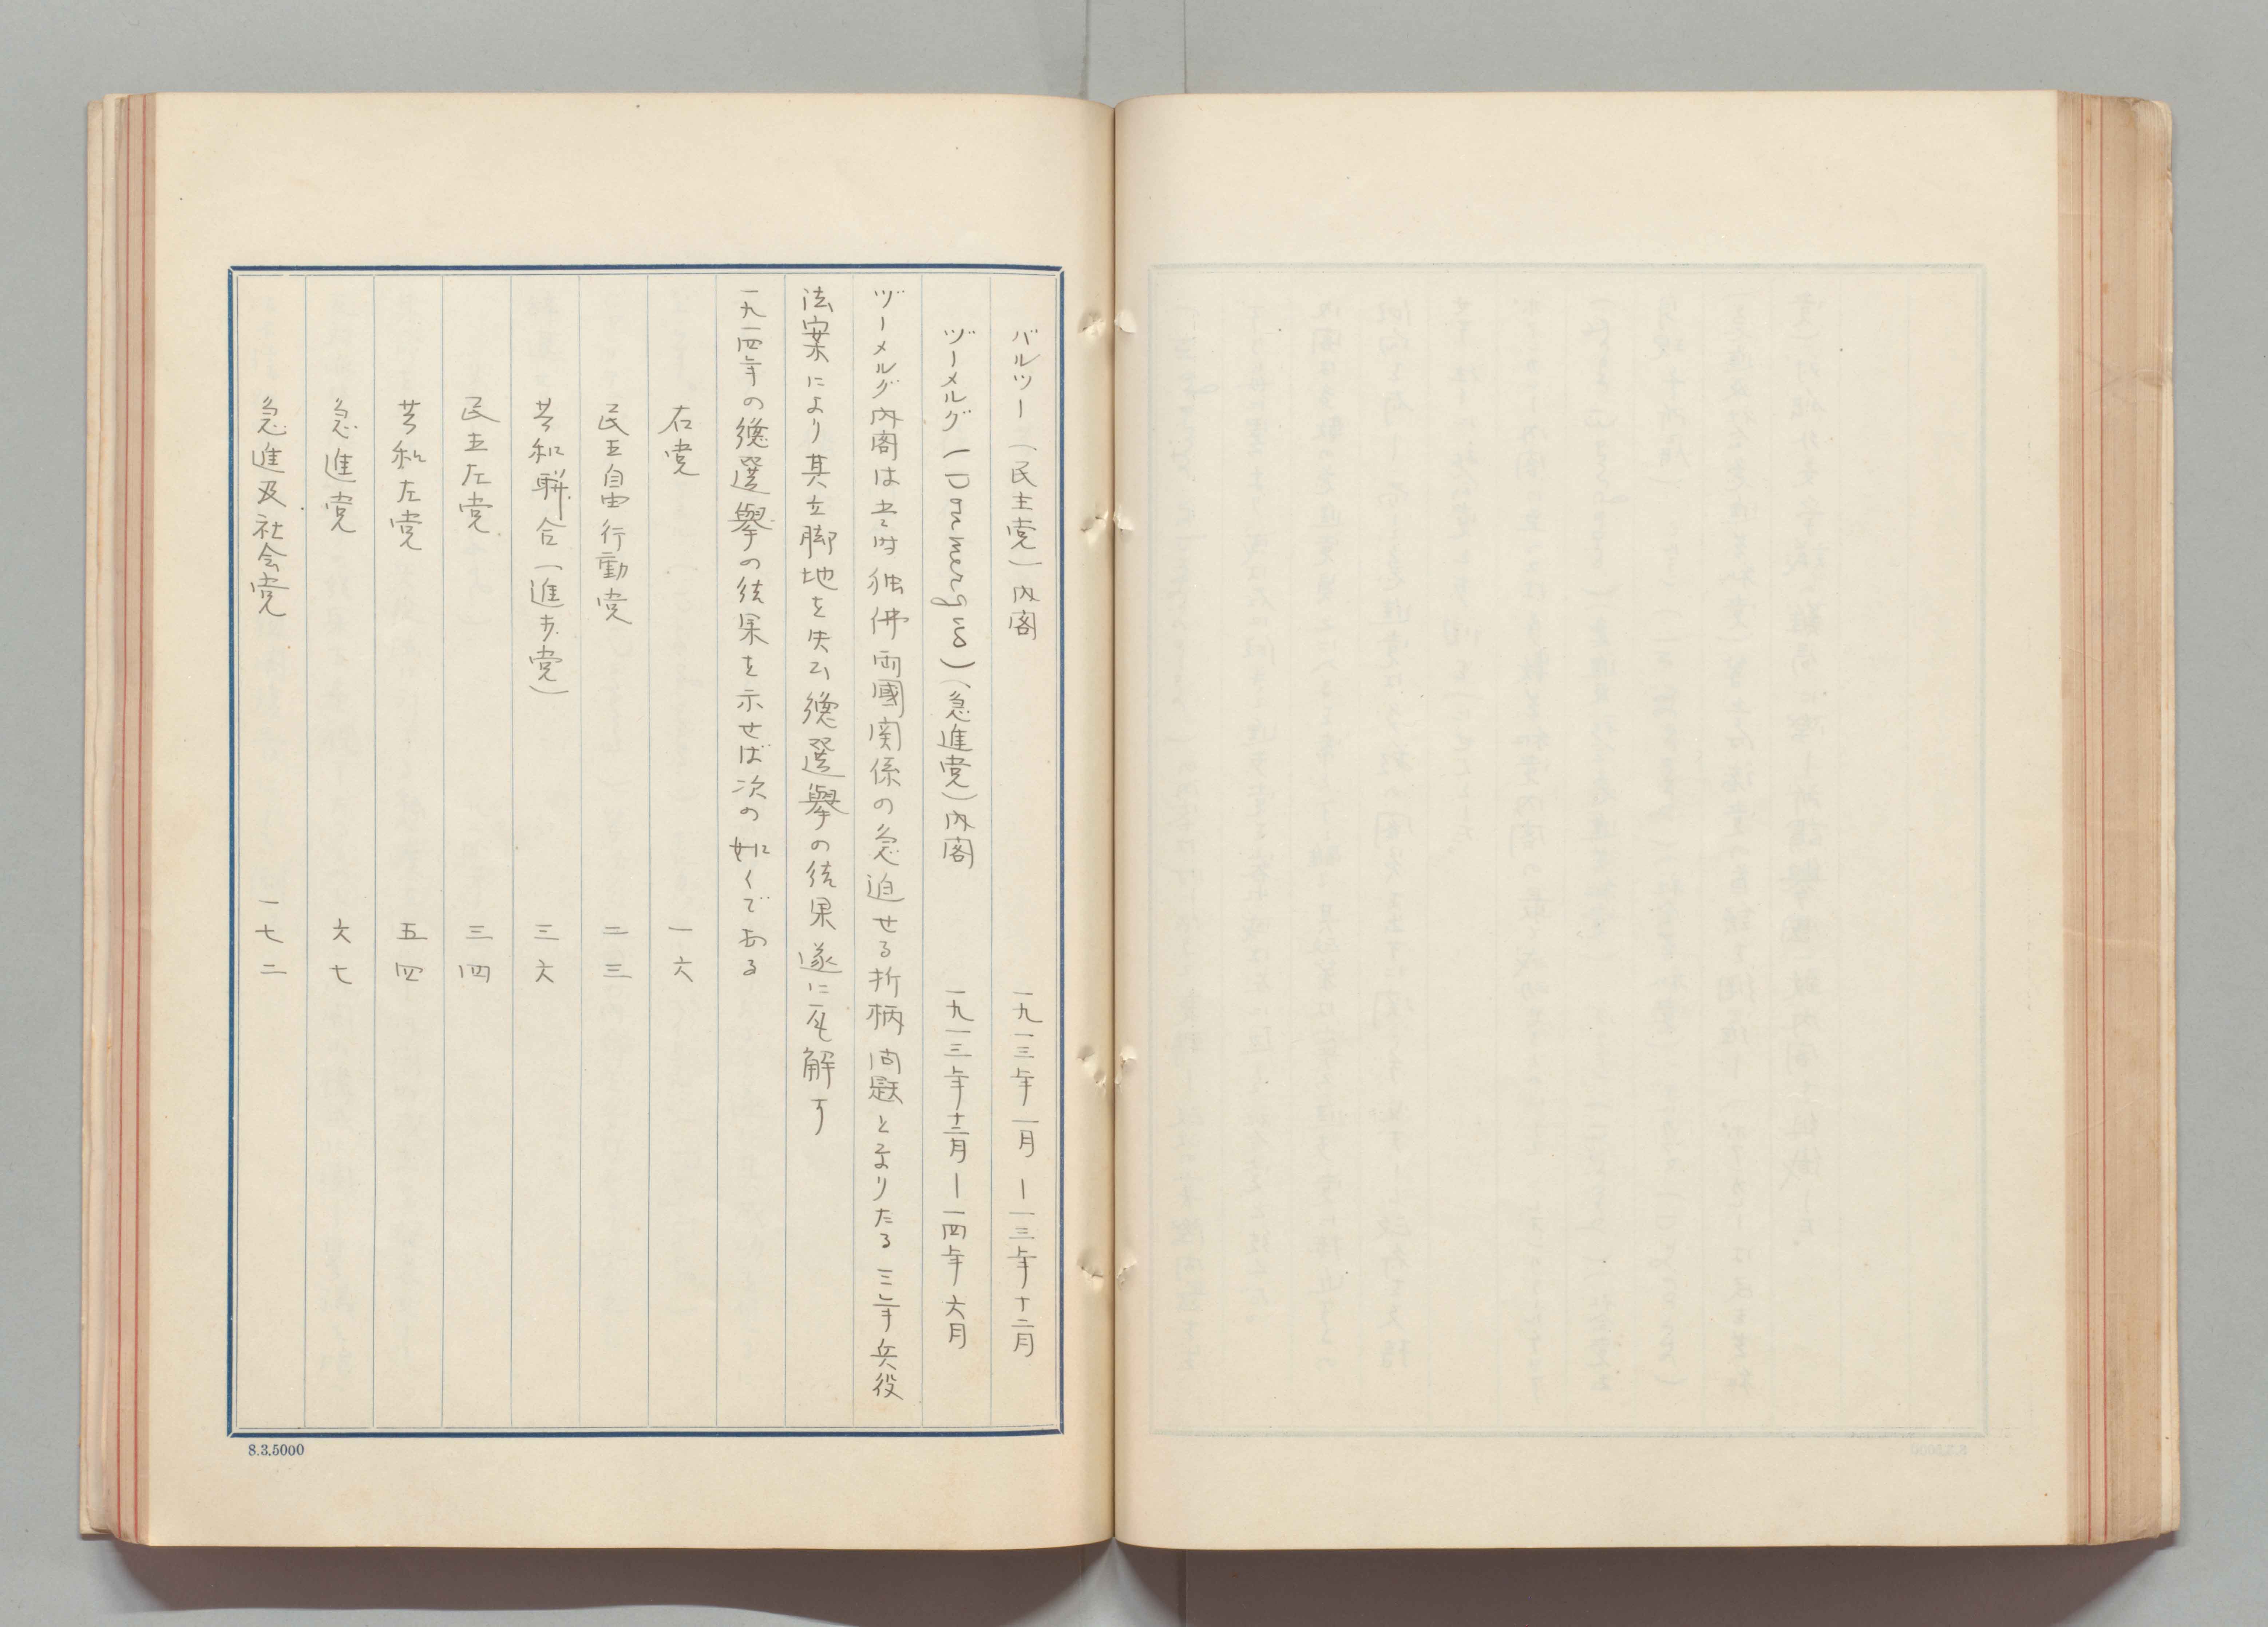 バルツー（民主党）内閣　一九一三年一月ー一三年十二月
ヅーメルグ（Doumergue）（急進党）内閣　一九一三年十二月ー一四年六月
ヅーメルグ内閣は時独佛両國関係の急迫せる折柄問題となりたる三年兵役
法案により其立脚地を失ひ総選擧の結果遂に瓦解す
一九一四年の総選擧の結果を示せば次の如くである
右党　一六
民主自由行動党　二三
共和聯合（進歩党）　三六
民主左党　三四
共和左党　五四
急進党　六七
急進及社会党　一七二
8.3.5000